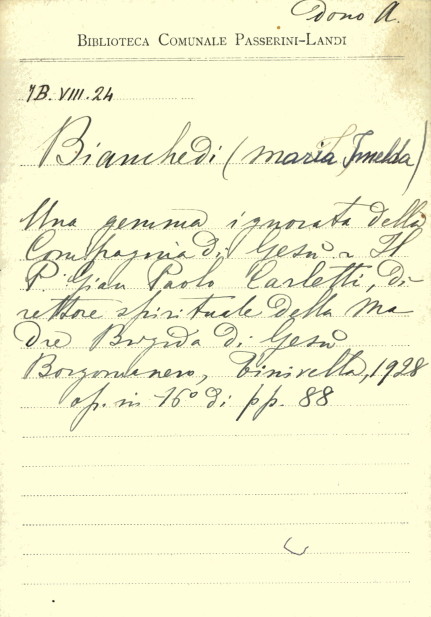 Dono A.
BIBLIOTECA COMUNALE PASSERINI-LANDI
7B.VIII.24
Bianchedi (Maria Imelda)
Una gemma ignorata della
Compagnia di Gesù - Il
P. Gian Paolo Carletti, di-
rettore spirituale della Ma
dre Brigida di Gesù
Borgomanero, Vinivella, 1928
op. in 16° di pp. 88